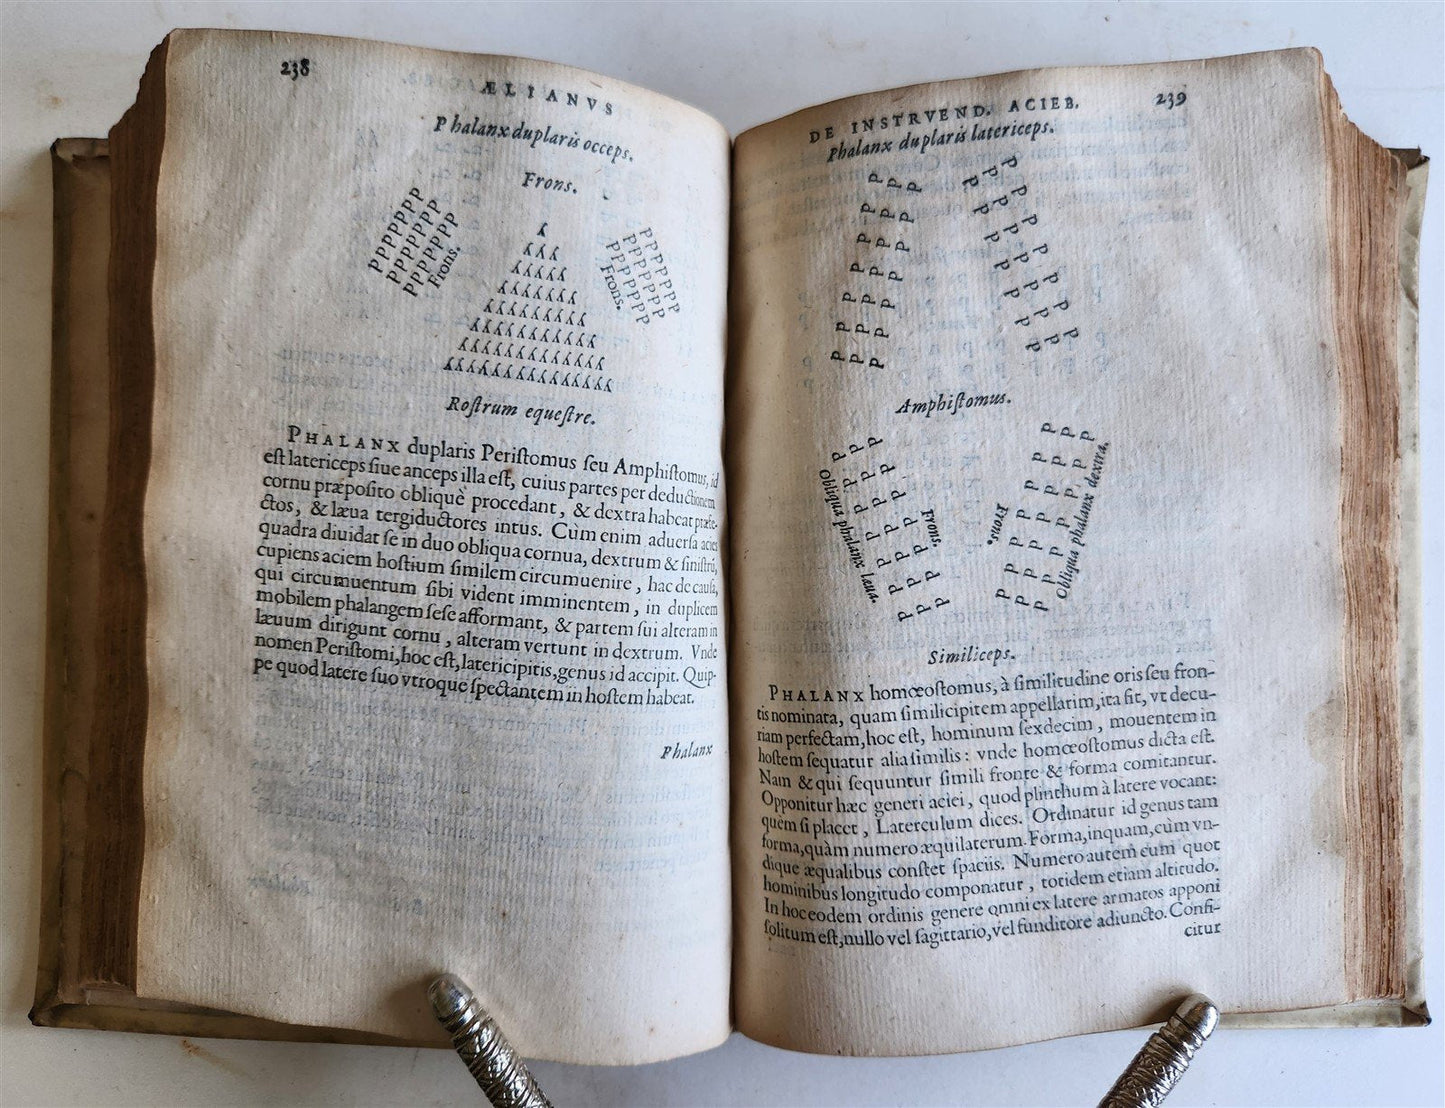 238
ÆLIANVS
Phalanx duplaris occeps.
Frons.
PPPPPPPP
PPPPPPPP
PPPPPPPP
Frons.
PPPPPPPP
PPPPPPPP
PPPPPPPP
Frons.
Rostrum equestre.
PHALANX duplaris Peristomus seu Amphistomus, id
est latericeps siue anceps illa est, cuius partes per deductionem
cornu præposito obliquè procedant, & dextra habeat præfe-
ctos, & læua tergiductores intus. Cùm enim aduersa acies
quadra diuidat se in duo obliqua cornua, dextrum & sinistrũ,
cupiens aciem hostium similem circumuenire, hac de causa,
qui circumuentum sibi vident imminentem, in duplicem
mobilem phalangem sese afformant, & partem sui alteram in
læuum dirigunt cornu, alteram vertunt in dextrum. Vnde
nomen Peristomi, hoc est, latericipitis, genus id accipit. Quip-
pe quod latere suo vtroque spectantem in hostem habeat.
Phalanx
DE INSTRVEND. ACIEB. 239
Phalanx duplaris latericeps.
Amphistomus.
Obliqua phalanx læua.
Frons.
Frons.
Obliqua phalanx dextra.
Similiceps.
PHALANX homœostomus, à similitudine oris seu fron-
tis nominata, quam similicipitem appellarim, ita sit, vt decu-
riam perfectam, hoc est, hominum sexdecim, mouentem in
hostem sequatur alia similis: vnde homœostomus dicta est.
Nam & qui sequuntur simili fronte & forma comitantur.
Opponitur hæc generi aciei, quod plinthum à latere vocant:
quem si placet, Laterculum dices. Ordinatur id genus tam
forma, quàm numero æquilaterum. Forma, inquam, cùm vn-
dique æqualibus constet spaciis. Numero autem cum quot
hominibus longitudo componatur, totidem etiam altitudo.
In hoc eodem ordinis genere omni ex latere armatos apponi
solitum est, nullo vel sagittario, vel funditore adiuncto. Confi-
citur